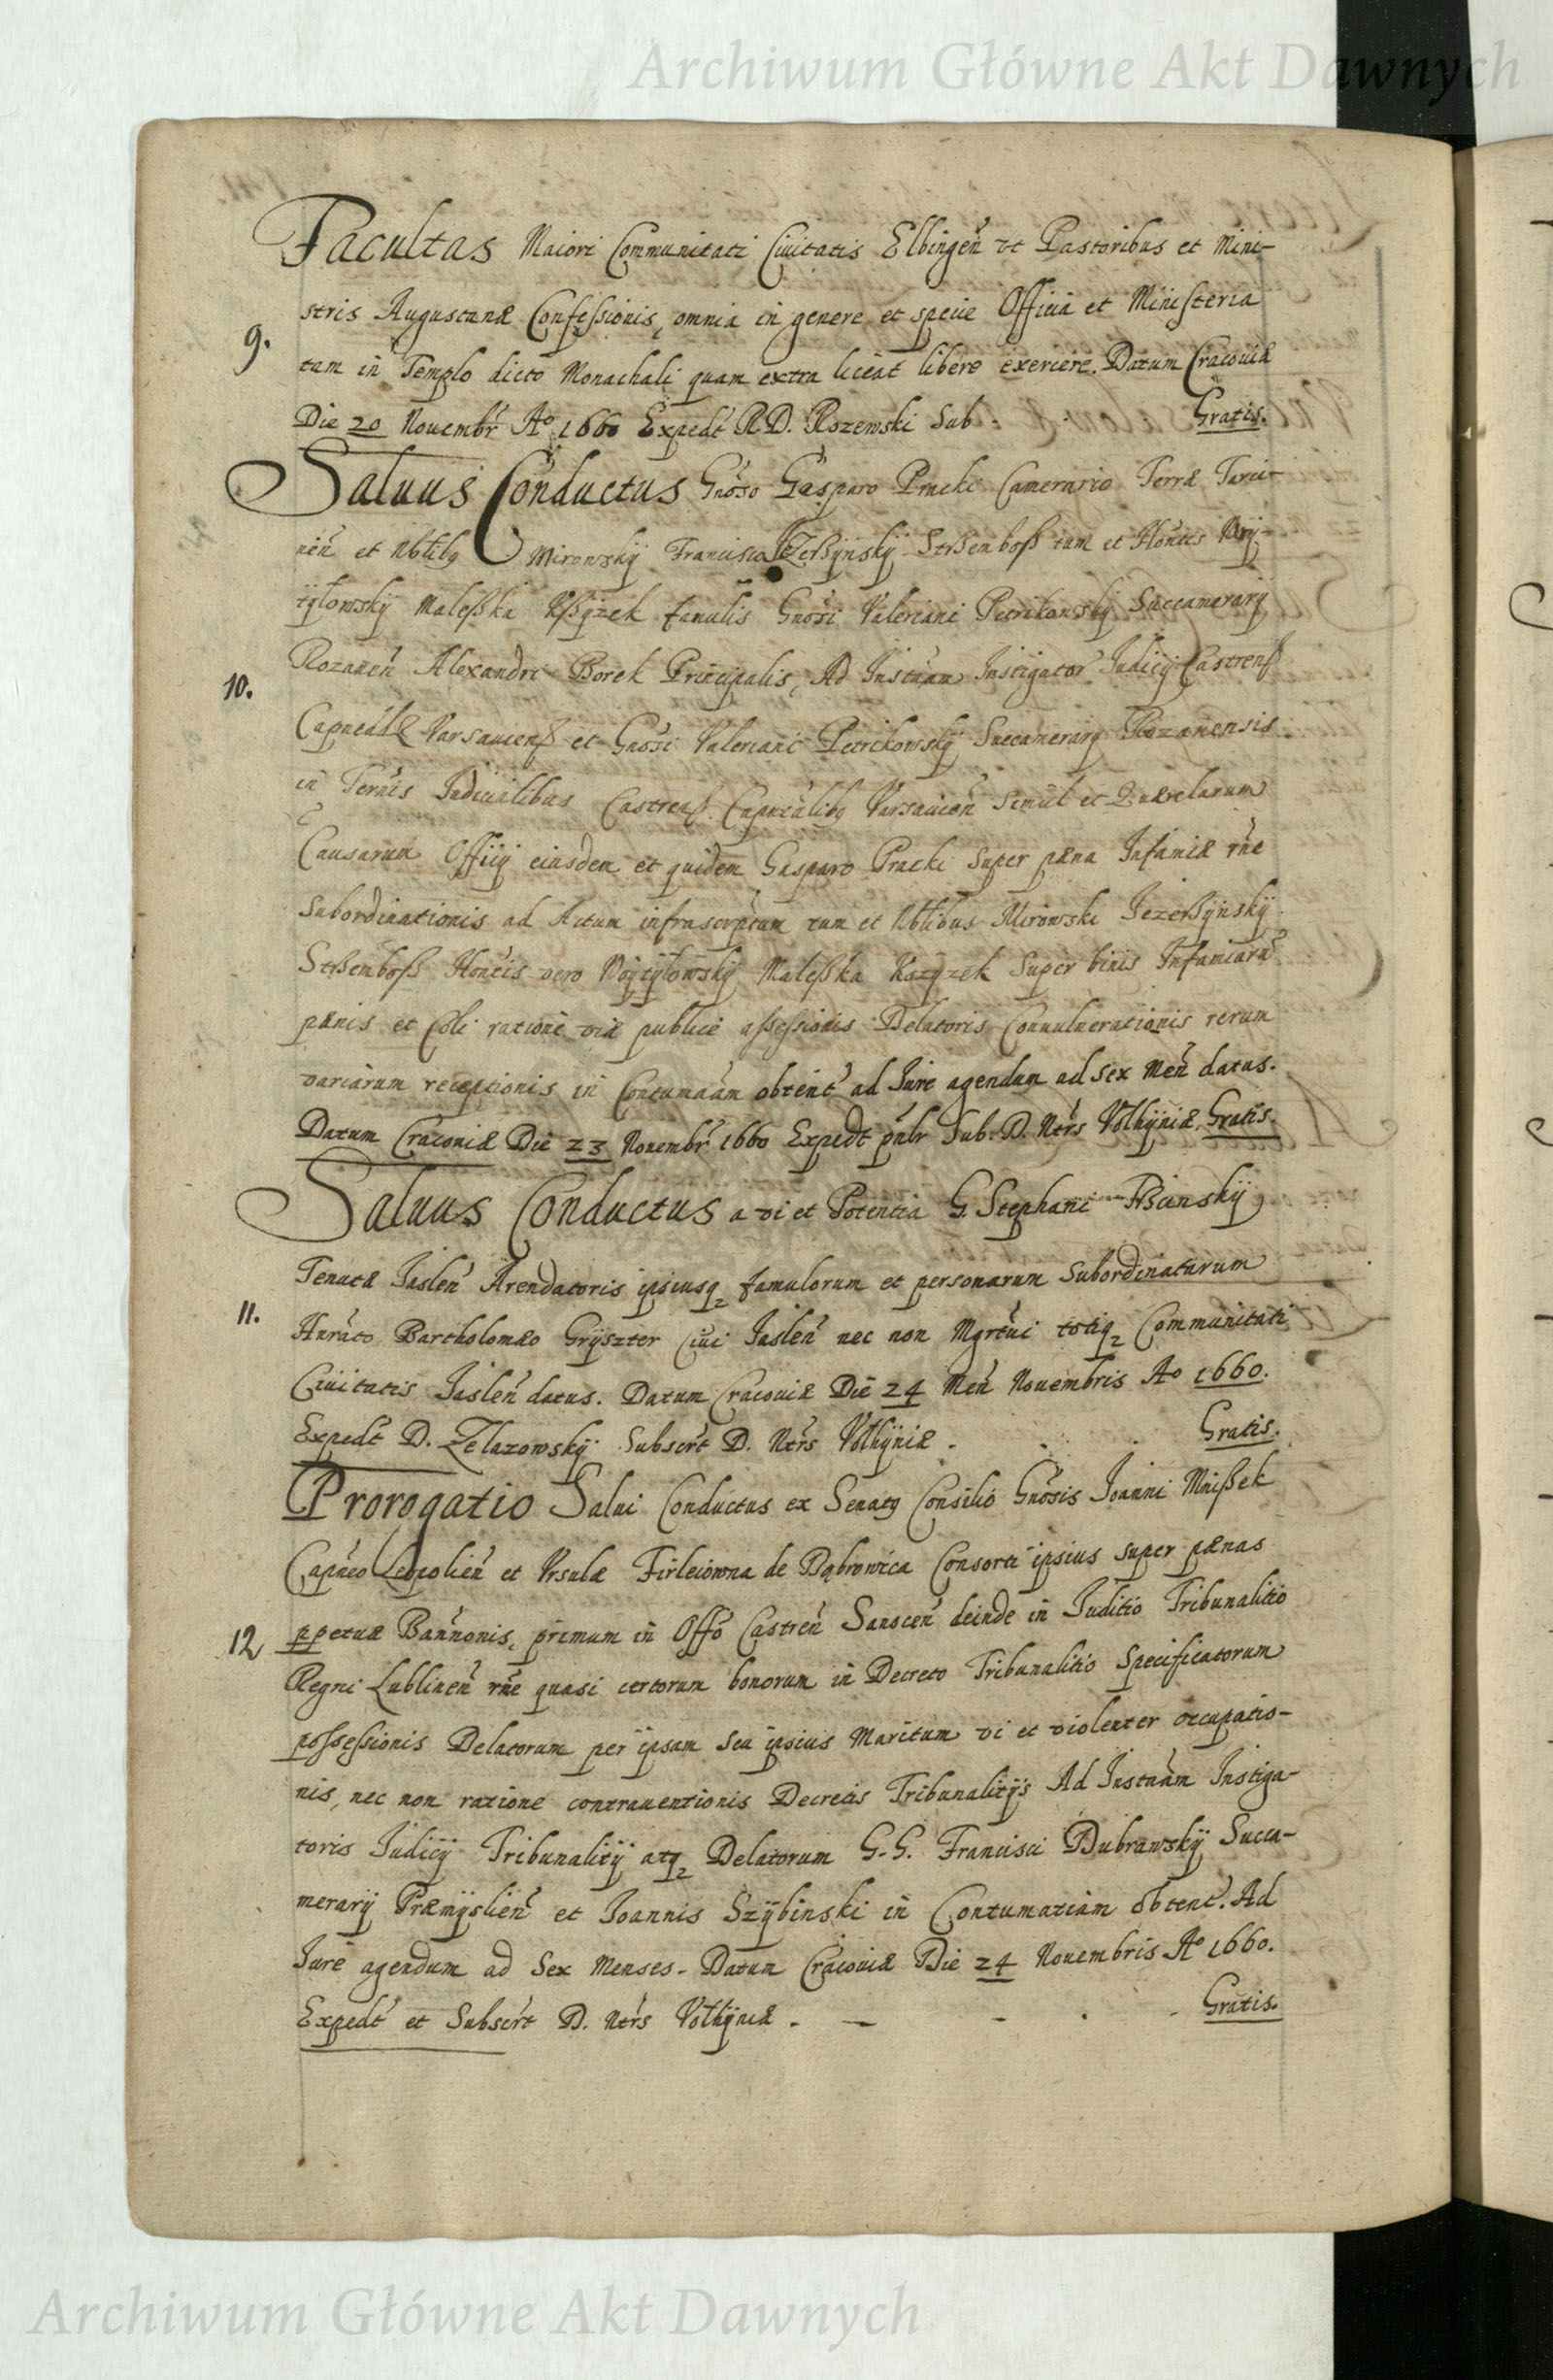 Archiwum Główne Akt Dawnych
Facultas Maiori Communitati Ciuitatis Elbingen̄ vt Pastoribus et Mini-
stris Augustanæ Confeſsionis, omnia in genere et specie Officia et Ministeria
9. tam in Templo dicto Monachali quam extra liceat libere exercere. Datum Cracouiæ
Die 20 Nouembr Ao 1660 Expedt R D. Rozewski Sub. Gratis.
Saluus Conductus Gnoso Gasparo Pracki Camerario Terræ
nen̄ et Nblibq Mirowskÿ Francisco tum et Hontis
Maleßka famulis Gnosi Valeriani Petrikowskÿ Succamerarÿ
10. Rozanen̄ Alexandri Borek Principalis, Ad Instnam Instigator Judicÿ Castrenß
Capnealis Varsauienß et Gnosi Valeriani Petrikowskÿ Succamerarÿ Rozanensis
in Ternis Judicialibus Castrenß. Captnalibq Varsauien̄ simul et Quærelarum
Causarum Officÿ eiusdem et quidem Gasparo Pracki super pæna Infamiæ rñe
Subordinationis ad Actum infrascriptum tum et Nblibus Mirowski Jezerßÿnskÿ
Strßemboß Hontis vero Woÿtÿlowskÿ Maleßka super binis Infamiarū
pænis et Coli ratione viæ publicæ aſseſsionis Delatoris Conuulnerationis rerum
variarum receptionis in Contumaām obtent ad Jure agendum ad sex Men̄ datus.
Datum Cracouiæ Die 23 Nouembr 1660 Expedt pnlr Sub. D. Ntrs Volhÿniæ. Gratis.
Saluus Conductus a vi et Potentia G. Stephani
Tenutæ Jaslen̄ Arendatoris ipsiusq famulorum et personarum subordinatarum
11. Hnrato Bartholomæo Grÿszter Ciui Jaslen̄ nec non Mgrtui totiq Communitati
Ciuitatis Jaslen̄ datus. Datum Cracouiæ Die 24 Men̄ Nouembris Ao 1660.
Expedt D. Zelazowskÿ Subscrt D. Ntrs Volhÿniæ. Gratis.
Prorogatio Salui Conductus ex Senatq Consilio Gnosis Joanni Mnißek
Capneo Leopolien̄ et Vrsulæ Firleiowna de Dąbrowica Consorti ipsius super pænas
12 ppetuæ Bannonis, primum in Offo Castren̄ Sanocen̄ deinde in Juditio Tribunalitio
Regni Lublinen̄ rñe quasi certorum bonorum in Decreto Tribunalitio Specificatorum
poſseſsionis Delatorum per ipsam seu ipsius Maritum vi et violenter occupatio-
nis, nec non ratione contrauentionis Decretis Tribunalitÿs Ad Instnam Instiga-
toris Judicÿ Tribunalitÿ atq Delatorum G. G. Francisci Dubrawskÿ Succa-
merarÿ Præmÿslien̄ et Joannis Szÿbinski in Contumatiam obtent. Ad
Jure agendum ad Sex Menses. Datum Cracouiæ Die 24 Nouembris Ao 1660.
Expedt et Subscrt D. Ntrs Volhÿniæ. Gratis.
Archiwum Główne Akt Dawnych